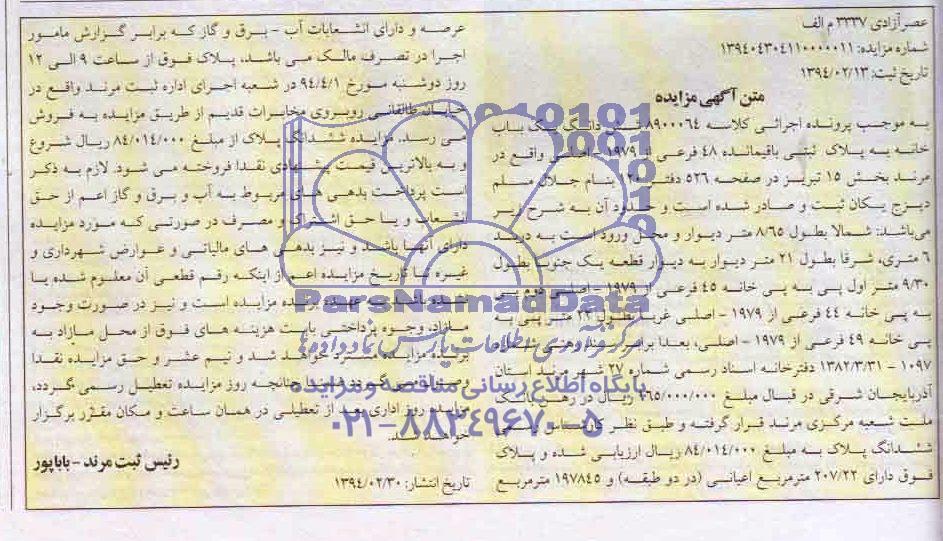 عصر آزادی ۳۳۳۷ م الف
شماره مزایده: ۱۳۹۴۰۴۳۰۴۱۱۰۰۰۰۰۱۱
تاریخ ثبت: ۱۳۹۴/۰۲/۱۳
متن آگهی مزایده
به موجب پرونده اجرائی کلاسه ۸۹۰۰۰۶۴ دانگ یک باب
خانه به پلاک ثبتی باقیمانده ۴۸ فرعی از ۱۹۷۹ اصلی واقع در
مرند بخش ۱۵ تبریز در صفحه ۵۲۶ دفتر ۱۲۰ بنام جلال مسلم
دیزج یکان ثبت و صادر شده است و حدود آن به شرح زیر
می‌باشد: شمالا بطول ۸/۶۵ متر دیوار و محل ورود است به دربند
۶ متری، شرقا بطول ۲۱ متر دیوار به دیوار قطعه یک جنوبا بطول
۹/۳۰ متر اول پی به پی خانه ۴۵ فرعی از ۱۹۷۹ - اصلی دوم پی
به پی خانه ۴۴ فرعی از ۱۹۷۹ - اصلی غربا بطول ۲۳ متر پی به
پی خانه ۴۹ فرعی از ۱۹۷۹ - اصلی، بعدا برابر سند رهنی شماره
۱۰۹۷ - ۱۳۸۲/۳/۳۱ دفترخانه اسناد رسمی شماره ۲۷ شهر مرند استان
آذربایجان شرقی در قبال مبلغ ۴۶۵/۰۰۰/۰۰۰ ریال در رهن بانک
ملت شعبه مرکزی مرند قرار گرفته و طبق نظر کارشناس رسمی
ششدانگ پلاک به مبلغ ۸۴/۰۱۴/۰۰۰ ریال ارزیابی شده و پلاک
فوق دارای ۲۰۷/۲۲ مترمربع اعیانی (در دو طبقه) و ۱۹۷۸۴۵ مترمربع
عرصه و دارای انشعابات آب - برق و گاز که برابر گزارش مامور
اجرا در تصرف مالک می باشد، پلاک فوق از ساعت ۹ الی ۱۲
روز دوشنبه مورخ ۹۴/۴/۱ در شعبه اجرای اداره ثبت مرند واقع در
خیابان طالقانی روبروی مخابرات قدیم از طریق مزایده به فروش
می رسد. مزایده ششدانگ پلاک از مبلغ ۸۴/۰۱۴/۰۰۰ ریال شروع
و به بالاترین قیمت پیشنهادی نقدا فروخته می شود. لازم به ذکر
است پرداخت بدهی های مربوط به آب و برق و گاز اعم از حق
انشعاب و یا حق اشتراک و مصرف در صورتی که مورد مزایده
دارای آنها باشد و نیز بدهی های مالیاتی و عوارض شهرداری و
غیره تا تاریخ مزایده اعم از اینکه رقم قطعی آن معلوم شده یا
نشده باشد به عهده برنده مزایده است و نیز در صورت وجود
مازاد، وجوه پرداختی بابت هزینه های فوق از محل مازاد به
برنده مزایده مسترد خواهد شد و نیم عشر و حق مزایده نقدا
وصول می گردد ضمنا چنانچه روز مزایده تعطیل رسمی گردد،
مزایده روز اداری بعد از تعطیلی در همان ساعت و مکان مقرر برگزار
خواهد شد.
رئیس ثبت مرند - باباپور
تاریخ انتشار: ۱۳۹۴/۰۲/۳۰
ParsNamadData
مرکز فرآوری اطلاعات پارس نماد داده‌ها
پایگاه اطلاع رسانی مناقصه و مزایده
۰۲۱-۸۸۳۴۹۶۷۰-۵